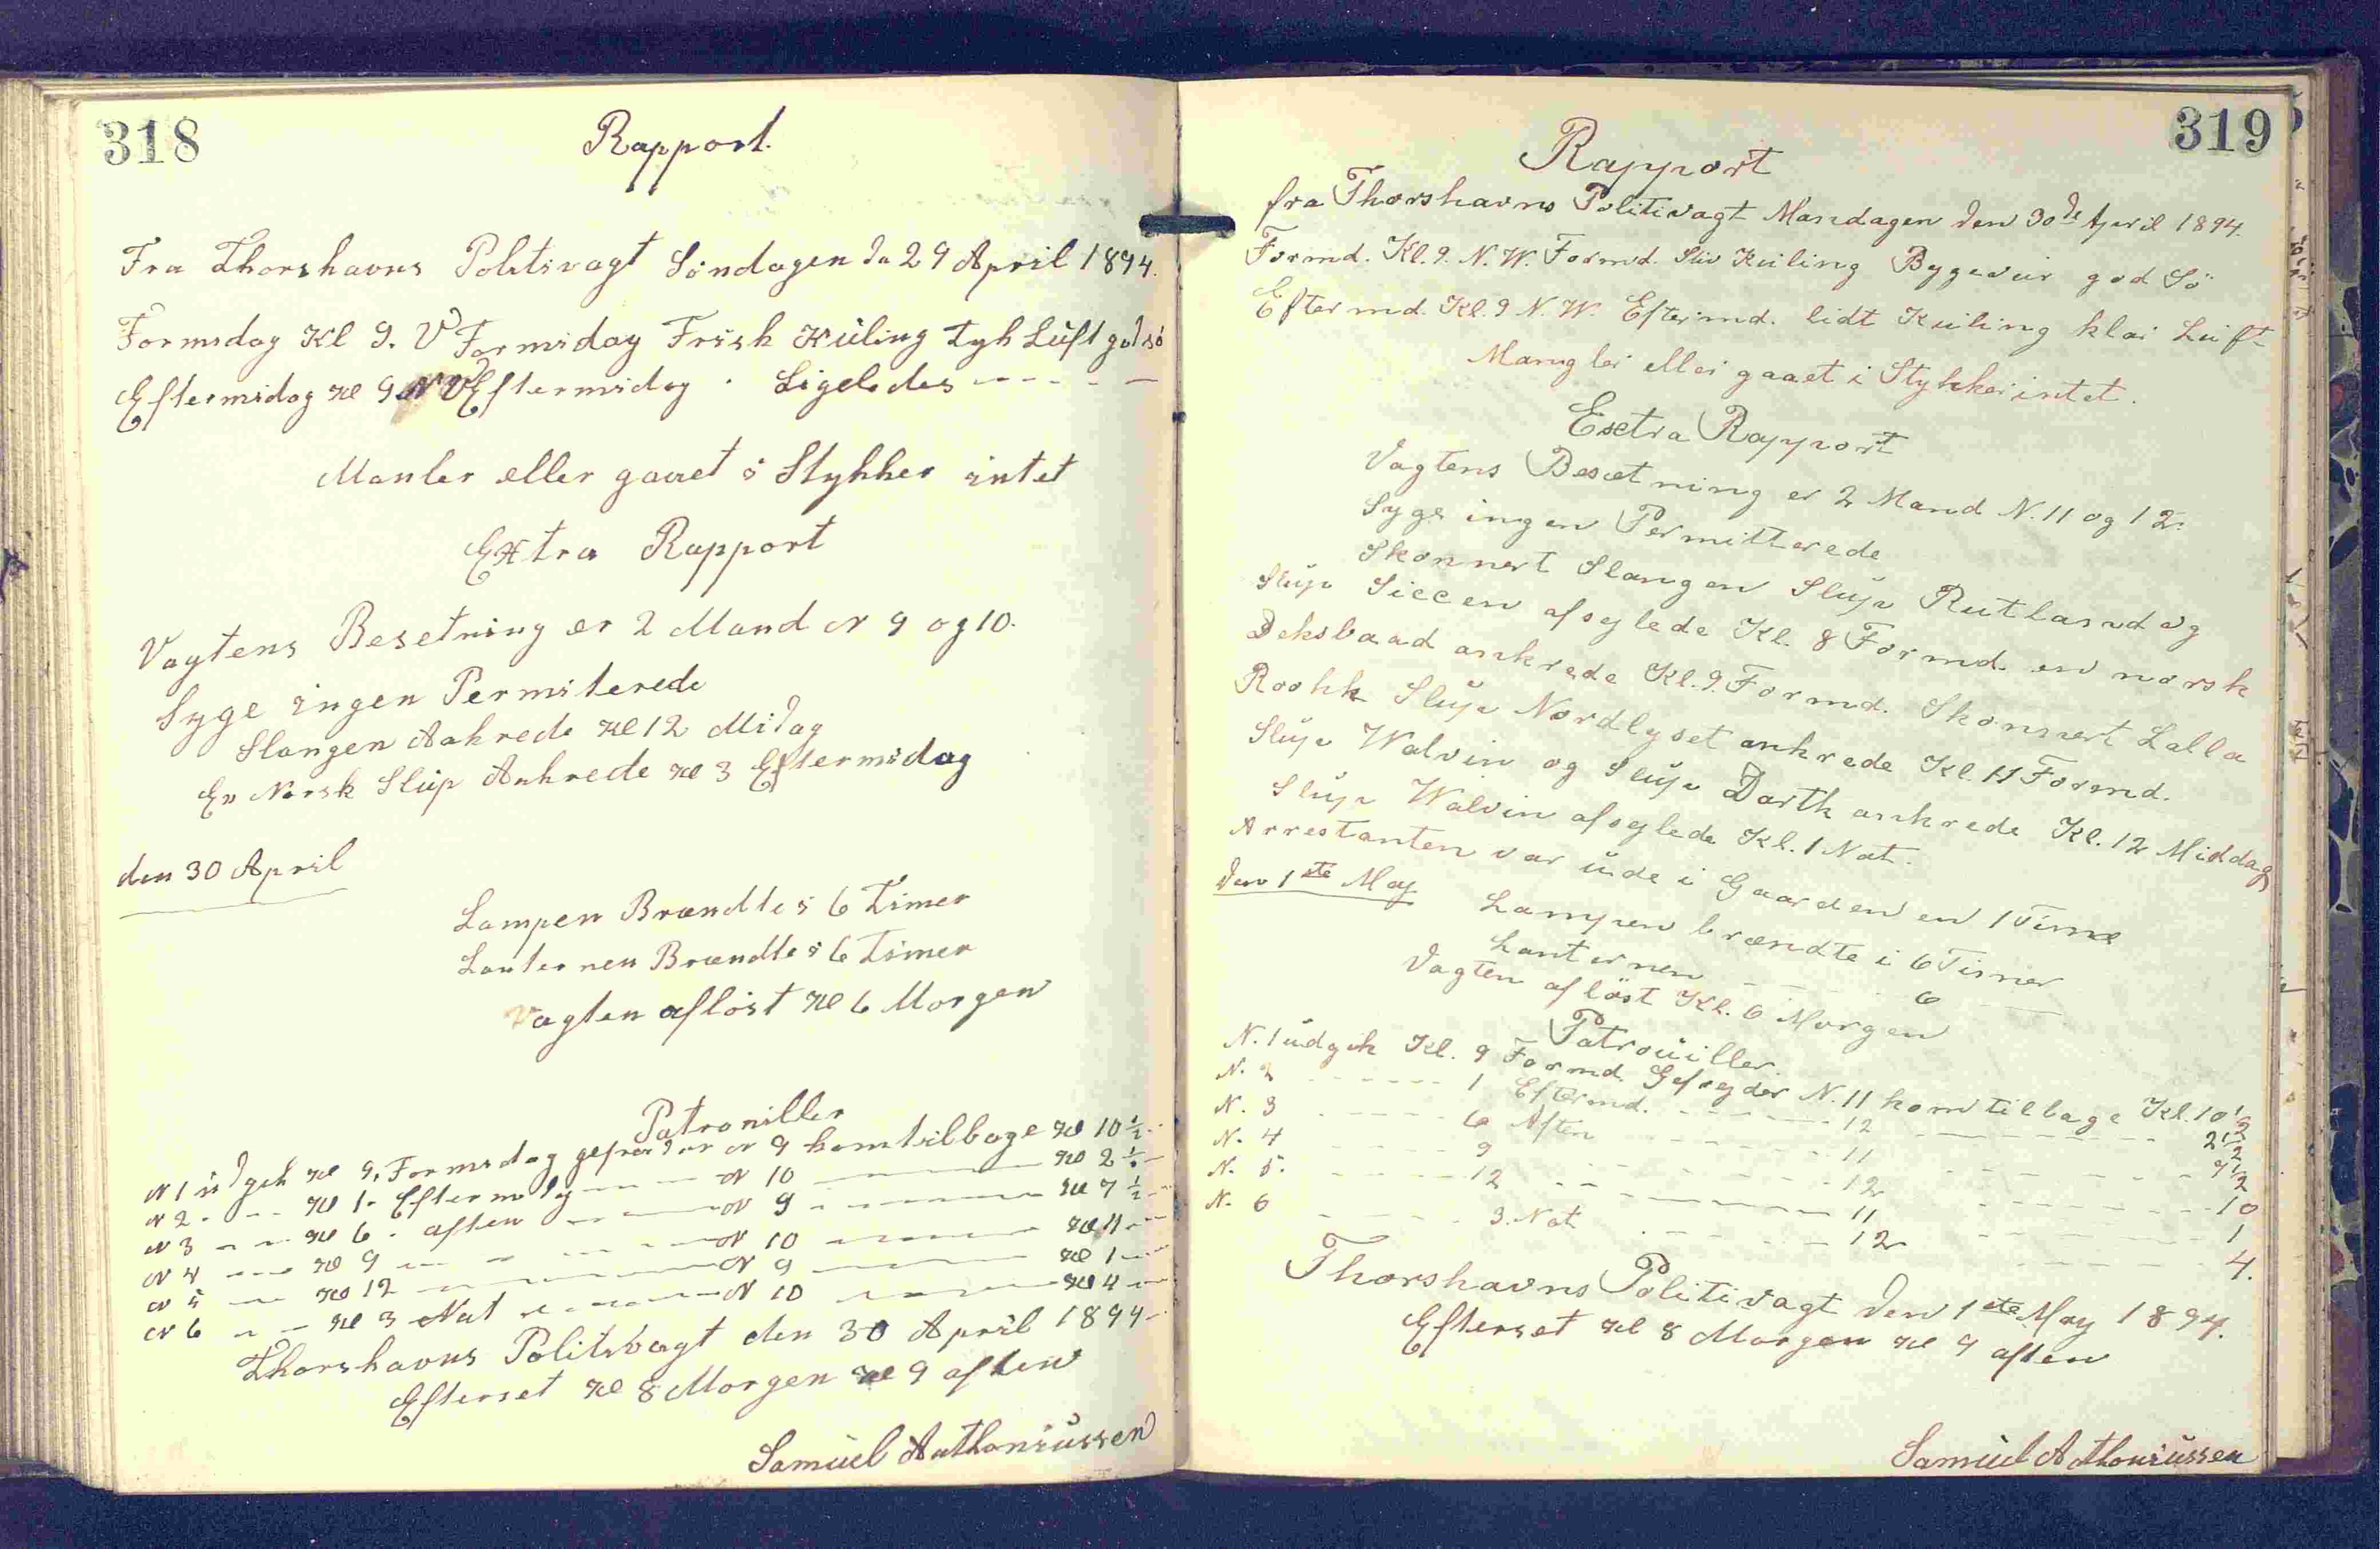 318
Rapport.
Fra Thorshavns Politivagt Söndagen d 29 April 1894.
Formidag Kl 9. V Formiday Frisk Küling tyk Lüft god sö
Eftermidag Kl 9 N V Eftermidag . Ligeledes - - - - -
Manler eller gaaet i Stykker intet
Extra Rapport
Vagtens Besetning er 2 Mand N 9 og 10.
Syge ingen Permiterede
Slangen Ankrede Kl 12 Midag
En Norsk Slup Ankrede Kl 3 Eftermidag
den 30 April
Lampen Brændte i 6 Timer
Lanternen Brændte i 6 Timer
Vagten aflöst Kl 6 Morgen
Patroniller
N 1 üdgik Kl 9. Formidag gefreider N 9 kom tilbage Kl 10 ½
N 2 - - - Kl 1 - Eftermidag - - - N 10 - - - Kl 2 ½
N 3 - - - Kl 6 . aften - - - N 9 - - - Kl 7 ½
N 4 - - - Kl 9 - - - N 10 - - - Kl 11
N 5 - - - Kl 12 - - - N 9 - - - Kl 1
N 6 - - - Kl 3 Nat - - - N 10 - - - Kl 4
Thorshavns Politivagt den 30 April 1894
Efterset Kl 8 Morgen Kl 9 aften
Samüel Anthoniüssen
319
Rapport
fra Thorshavns Politivagt Mandagen den 30de April 1894.
Formd. Kl. 9. N. W. Formd. Stiv Küling Bygeveir god Sö
Eftermd. Kl. 9 N. W. Eftermd. lidt Küling klar Lüft
Mangler eller gaaet i Stykker intet.
Exctra Rapport
Vagtens Besætning er 2 Mand N. 11 og 12.
Syge ingen Permitterede
Skonnert Slangen Slüp Rutland og
Slüp Siccen afsejlede Kl. 8 Formd. en norsk
Deksbaad ankrede Kl. 9. Formd. Skonnert Lalla
Rookk Slüp Nordlyset ankrede Kl. 11 Formd.
Slüp Walvin og Slüp Darth ankrede Kl. 12 Middag
Slüp Walvin afsejlede Kl. 1 Nat.
Arrestanten var üde i Gaarden en 1 Time
den 1ste May
Lampen brændte i 6 Timer
Lanternen - - - - - 6 - - -
Vagten aflöst Kl. 6 Morgen
Patroüiller.
N. 1 üdgik Kl. 9 Formd. Gefrejder N. 11 kom tilbage Kl. 10 ½
N. 2 - - - - - 1 Eftermd. - - - - - 12 - - - - - 2 ½
N. 3 - - - - - 6 Aften - - - - - 11 - - - - - 7 ½
N. 4 - - - - - 9 - - - - - 12 - - - - - 10
N. 5. - - - - - 12 - - - - - 11 - - - - - 1
N. 6 - - - - - 3. Nat - - - - - 12 - - - - - 4.
Thorshavns Politivagt den 1ste May 1894.
Efterset Kl 8 Morgen Kl 9 aften
Samüel Anthoniüssen